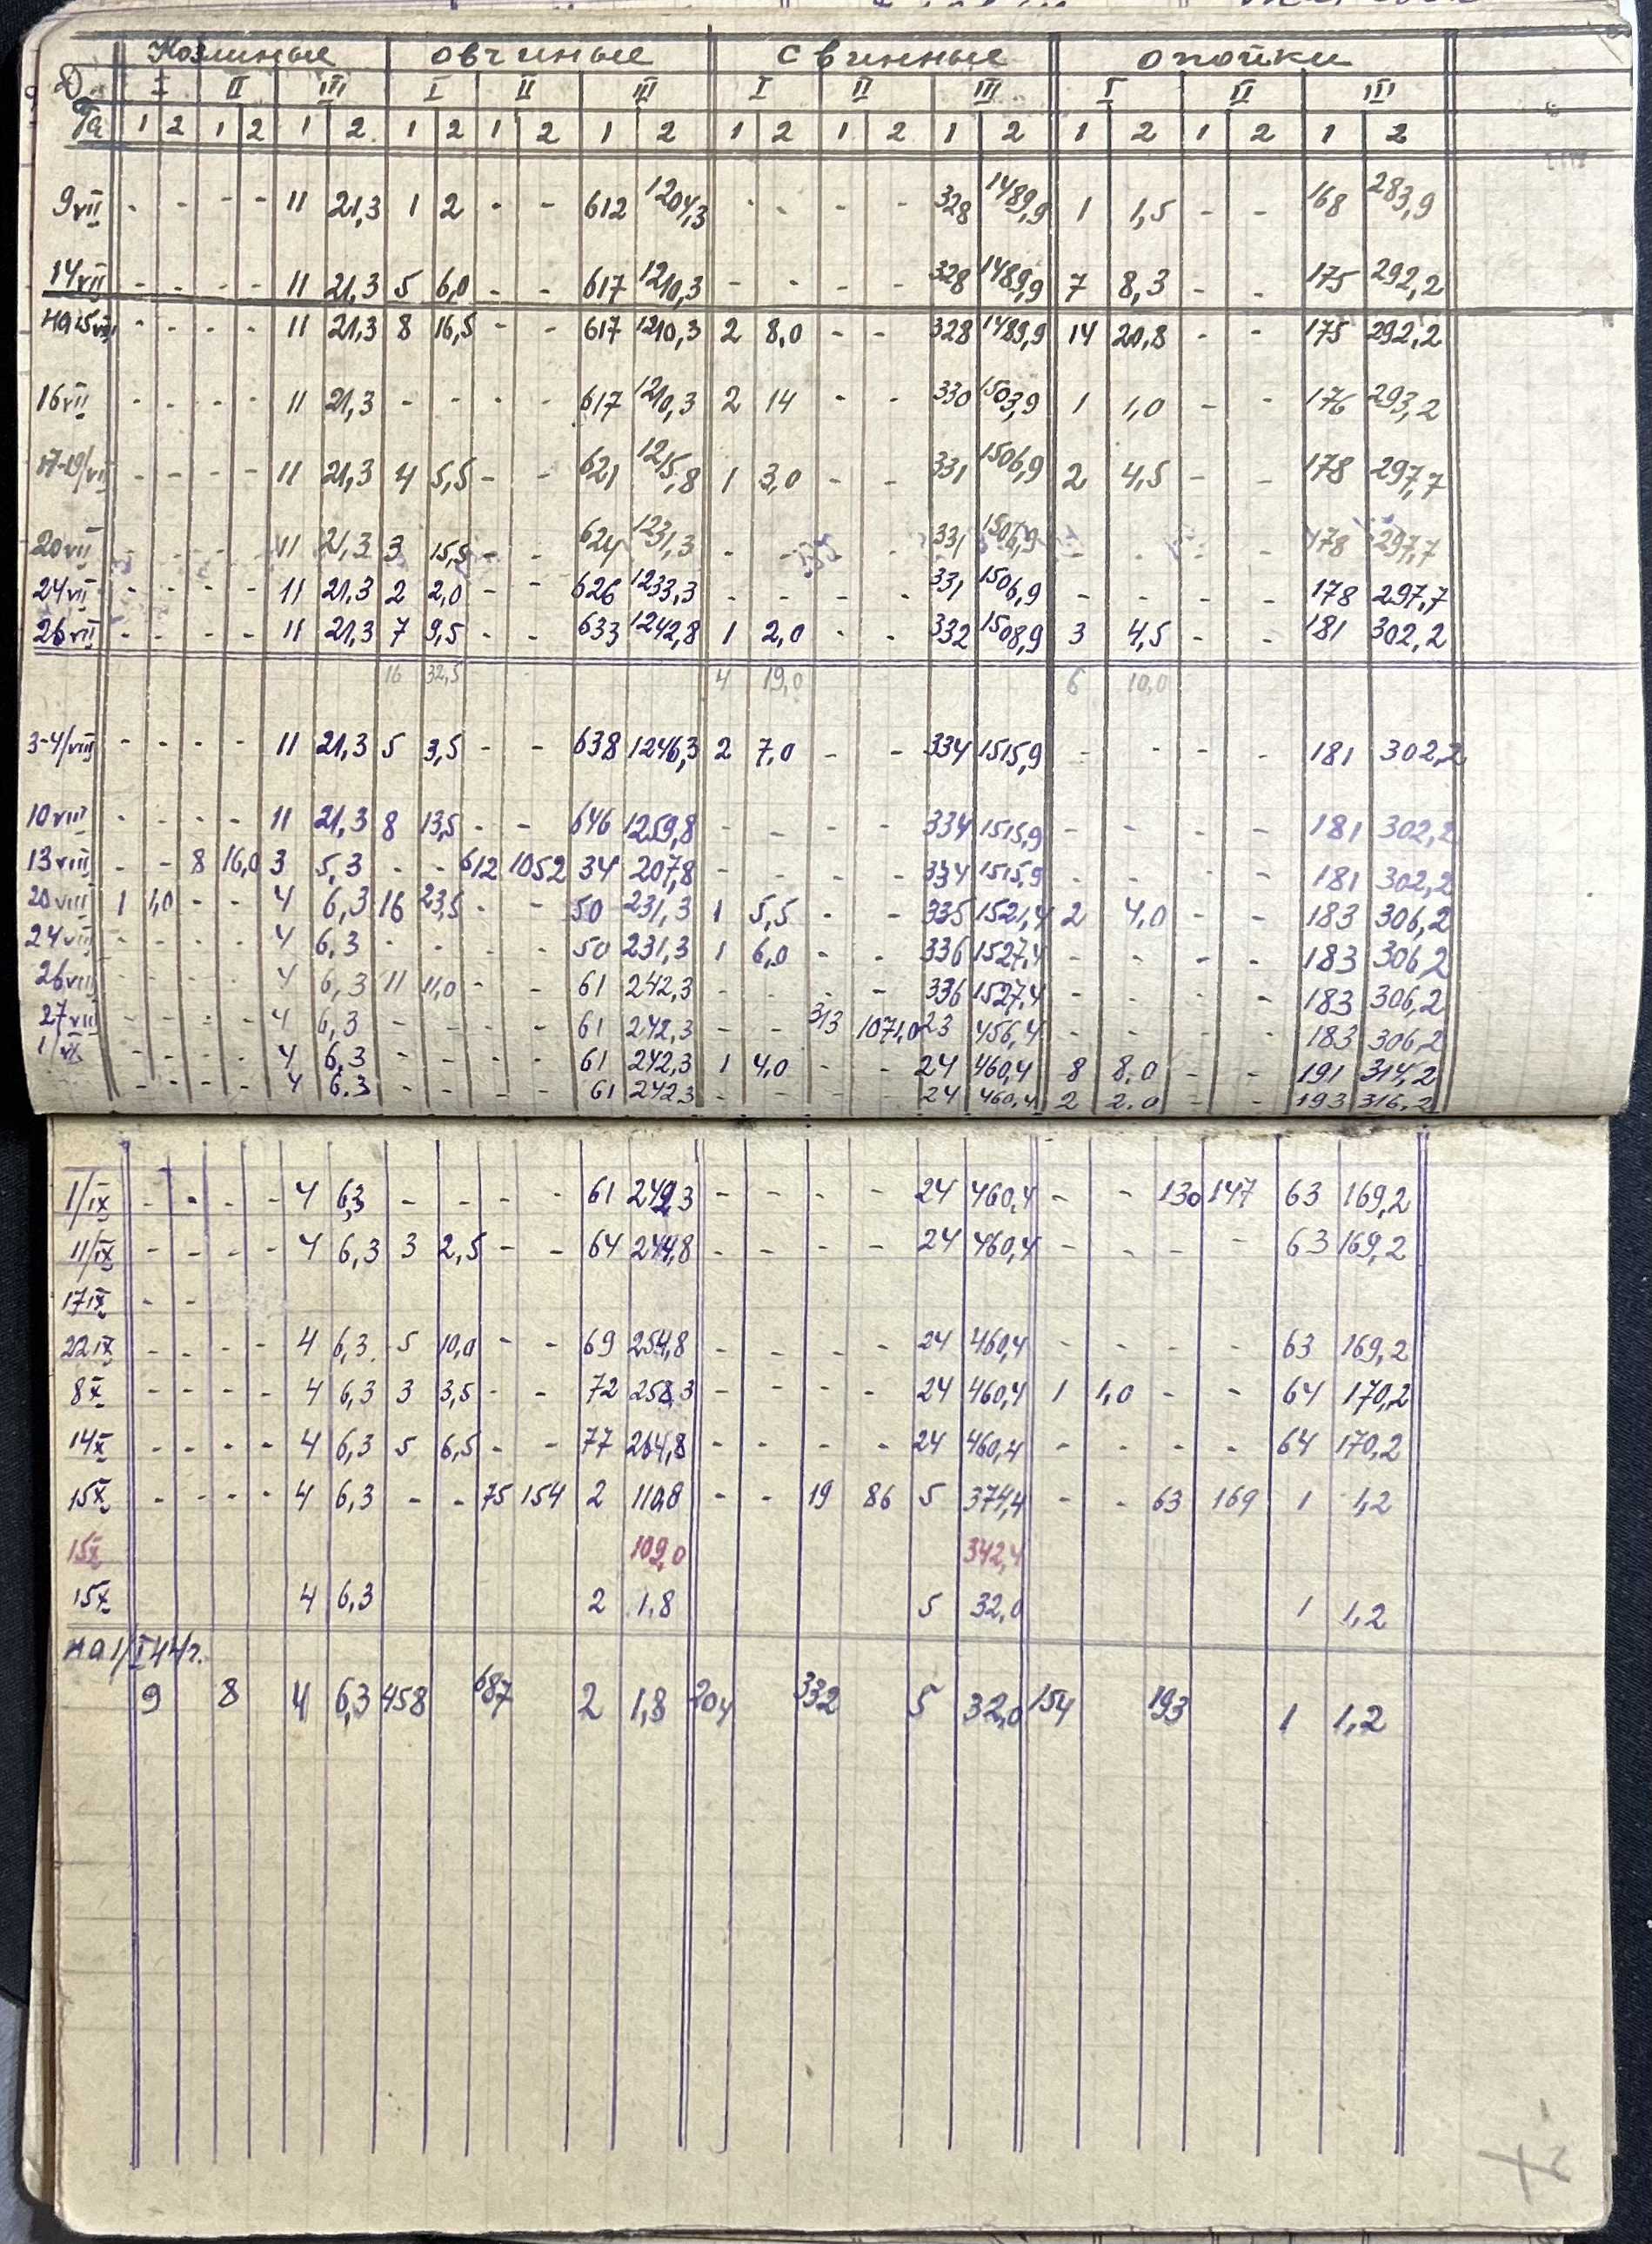 Козлиные овчиные свинные опойки
Да I II III I II III I II III I II III
та 1 2 1 2 1 2 1 2 1 2 1 2 1 2 1 2 1 2 1 2 1 2 1 2
9 VII - - - - 11 21,3 1 2 - - 612 1204,3 - - - - 328 1489,9 1 1,5 - - 168 283,9
14 VII - - - - 11 21,3 5 6,0 - - 617 1210,3 - - - - 328 1489,9 7 8,3 - - 175 292,2
на 15 VII - - - - 11 21,3 8 16,5 - - 617 1210,3 2 8,0 - - 328 1489,9 14 20,8 - - 175 292,2
16 VII - - - - 11 21,3 - - - - 617 1210,3 2 14 - - 330 1503,9 1 1,0 - - 176 293,2
17-19/VII - - - - 11 21,3 4 5,5 - - 621 1215,8 1 3,0 - - 331 1506,9 2 4,5 - - 178 297,7
20 VII - - - - 11 21,3 3 15,5 - - 624 1231,3 - - - - 331 1506,9 - - - - 178 297,7
24 VII - - - - 11 21,3 2 2,0 - - 626 1233,3 - - - - 331 1506,9 - - - - 178 297,7
26 VII - - - - 11 21,3 7 9,5 - - 633 1242,8 1 2,0 - - 332 1508,9 3 4,5 - - 181 302,2
16 32,5 4 19,0 6 10,0
3-4/VIII - - - - 11 21,3 5 3,5 - - 638 1246,3 2 7,0 - - 334 1515,9 - - - - 181 302,2
10 VIII - - - - 11 21,3 8 13,5 - - 646 1259,8 - - - - 334 1515,9 - - - - 181 302,2
13 VIII - - 8 16,0 3 5,3 - - 612 1052 34 207,8 - - - - 334 1515,9 - - - - 181 302,2
20 VIII 1 1,0 - - 4 6,3 16 23,5 - - 50 231,3 1 5,5 - - 335 1521,4 2 4,0 - - 183 306,2
24 VIII - - - - 4 6,3 - - - - 50 231,3 1 6,0 - - 336 1527,4 - - - - 183 306,2
26 VIII - - - - 4 6,3 11 11,0 - - 61 242,3 - - - - 336 1527,4 - - - - 183 306,2
27 VIII - - - - 4 6,3 - - - - 61 242,3 - - 313 1071,0 23 456,4 - - - - 183 306,2
1/IX - - - - 4 6,3 - - - - 61 242,3 1 4,0 - - 24 460,4 8 8,0 - - 191 314,2
- - - - 4 6.3 - - - - 61 242.3 - - - - 24 460,4 2 2.0 - - 193 316,2
1/IX - - - - 4 6,3 - - - - 61 242,3 - - - - 24 460,4 - - 130 147 63 169,2
11/IX - - - - 4 6,3 3 2,5 - - 64 244,8 - - - - 24 460,4 - - - - 63 169,2
17 IX - -
22 IX - - - - 4 6,3 5 10,0 - - 69 254,8 - - - - 24 460,4 - - - - 63 169,2
8 X - - - - 4 6,3 3 3,5 - - 72 258,3 - - - - 24 460,4 1 1,0 - - 64 170,2
14 X - - - - 4 6,3 5 6,5 - - 77 264,8 - - - - 24 460,4 - - - - 64 170,2
15 X - - - - 4 6,3 - - 75 154 2 110,8 - - 19 86 5 374,4 - - 63 169 1 1,2
15 X 109,0 342,4
15 X 4 6,3 2 1,8 5 32,0 1 1,2
на 1/I 44 г.
9 8 4 6,3 458 687 2 1,8 204 332 5 32,0 154 193 1 1,2